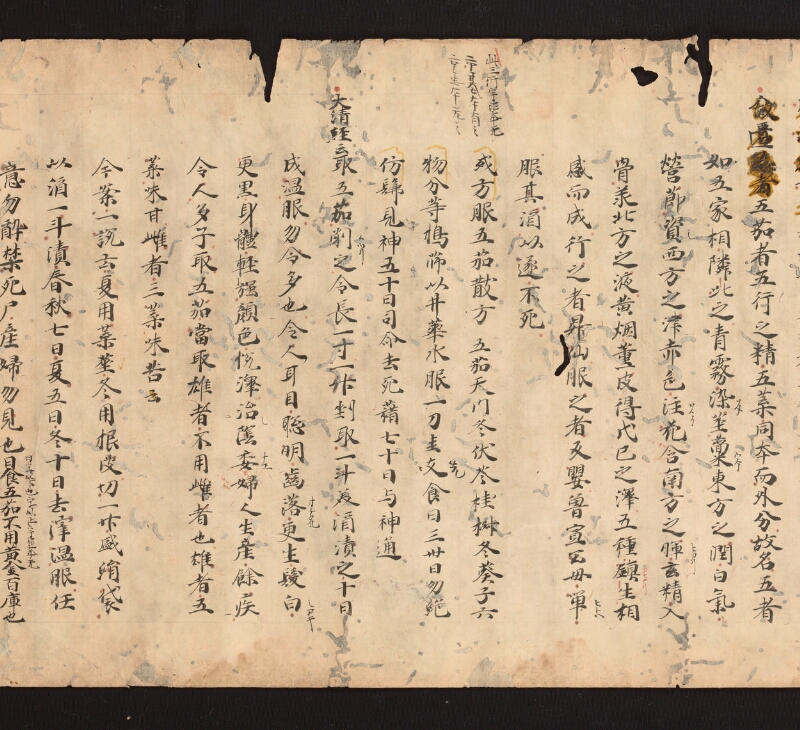 五茄者五行之精五葉同本而外分故名五者
如五家相隣比之青霧染莖稟東方之潤白氣
營節資西方之津赤色注花含南方之暉玄精入
骨羕北方之液黄烟薫皮得戊己之澤五種鎮生相
感而成行之者昇仙服之者反嬰魯宣公母單
服其酒以遂不死
此三行
或方服五茄散方 五茄天門冬伏苓桂椒冬葵子六
物分等搗篩以井華水服一刀圭先食日三卅日勿絶
仿肆見神五十日司命去死籍七十日与神通
大清経云取五茄削之令長一寸一升剉取一斗美酒漬之十日
成温服勿令多也令人耳目聡明齒落更生髮白
更黒身體軽強顔色悦澤治陰委婦人生産餘疾
令人多子取五茄當取雄者不用雌者也雄者五
葉味甘雌者三葉味苦云
今案一説云夏用葉莖冬用根皮切一升盛絹袋
以酒一斗漬春秋七日夏五日冬十日去滓温服任
意勿酔禁死尸産婦勿見也
日食五茄不用黄金百庫也